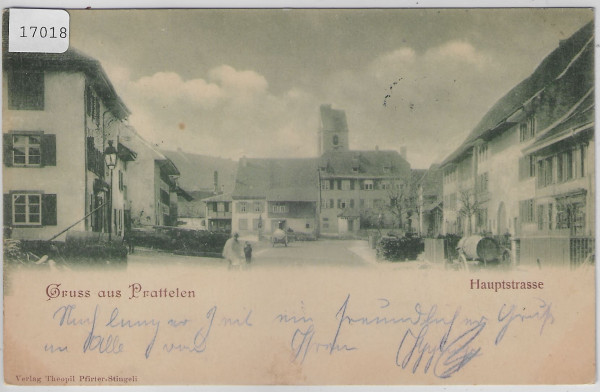 17018
Gruss aus Prattelen
Hauptstrasse
Nach langer Zeit ein freundlicher Gruß
an Alle von Ihrem
Verlag Theopil Pfirter-Stingeli